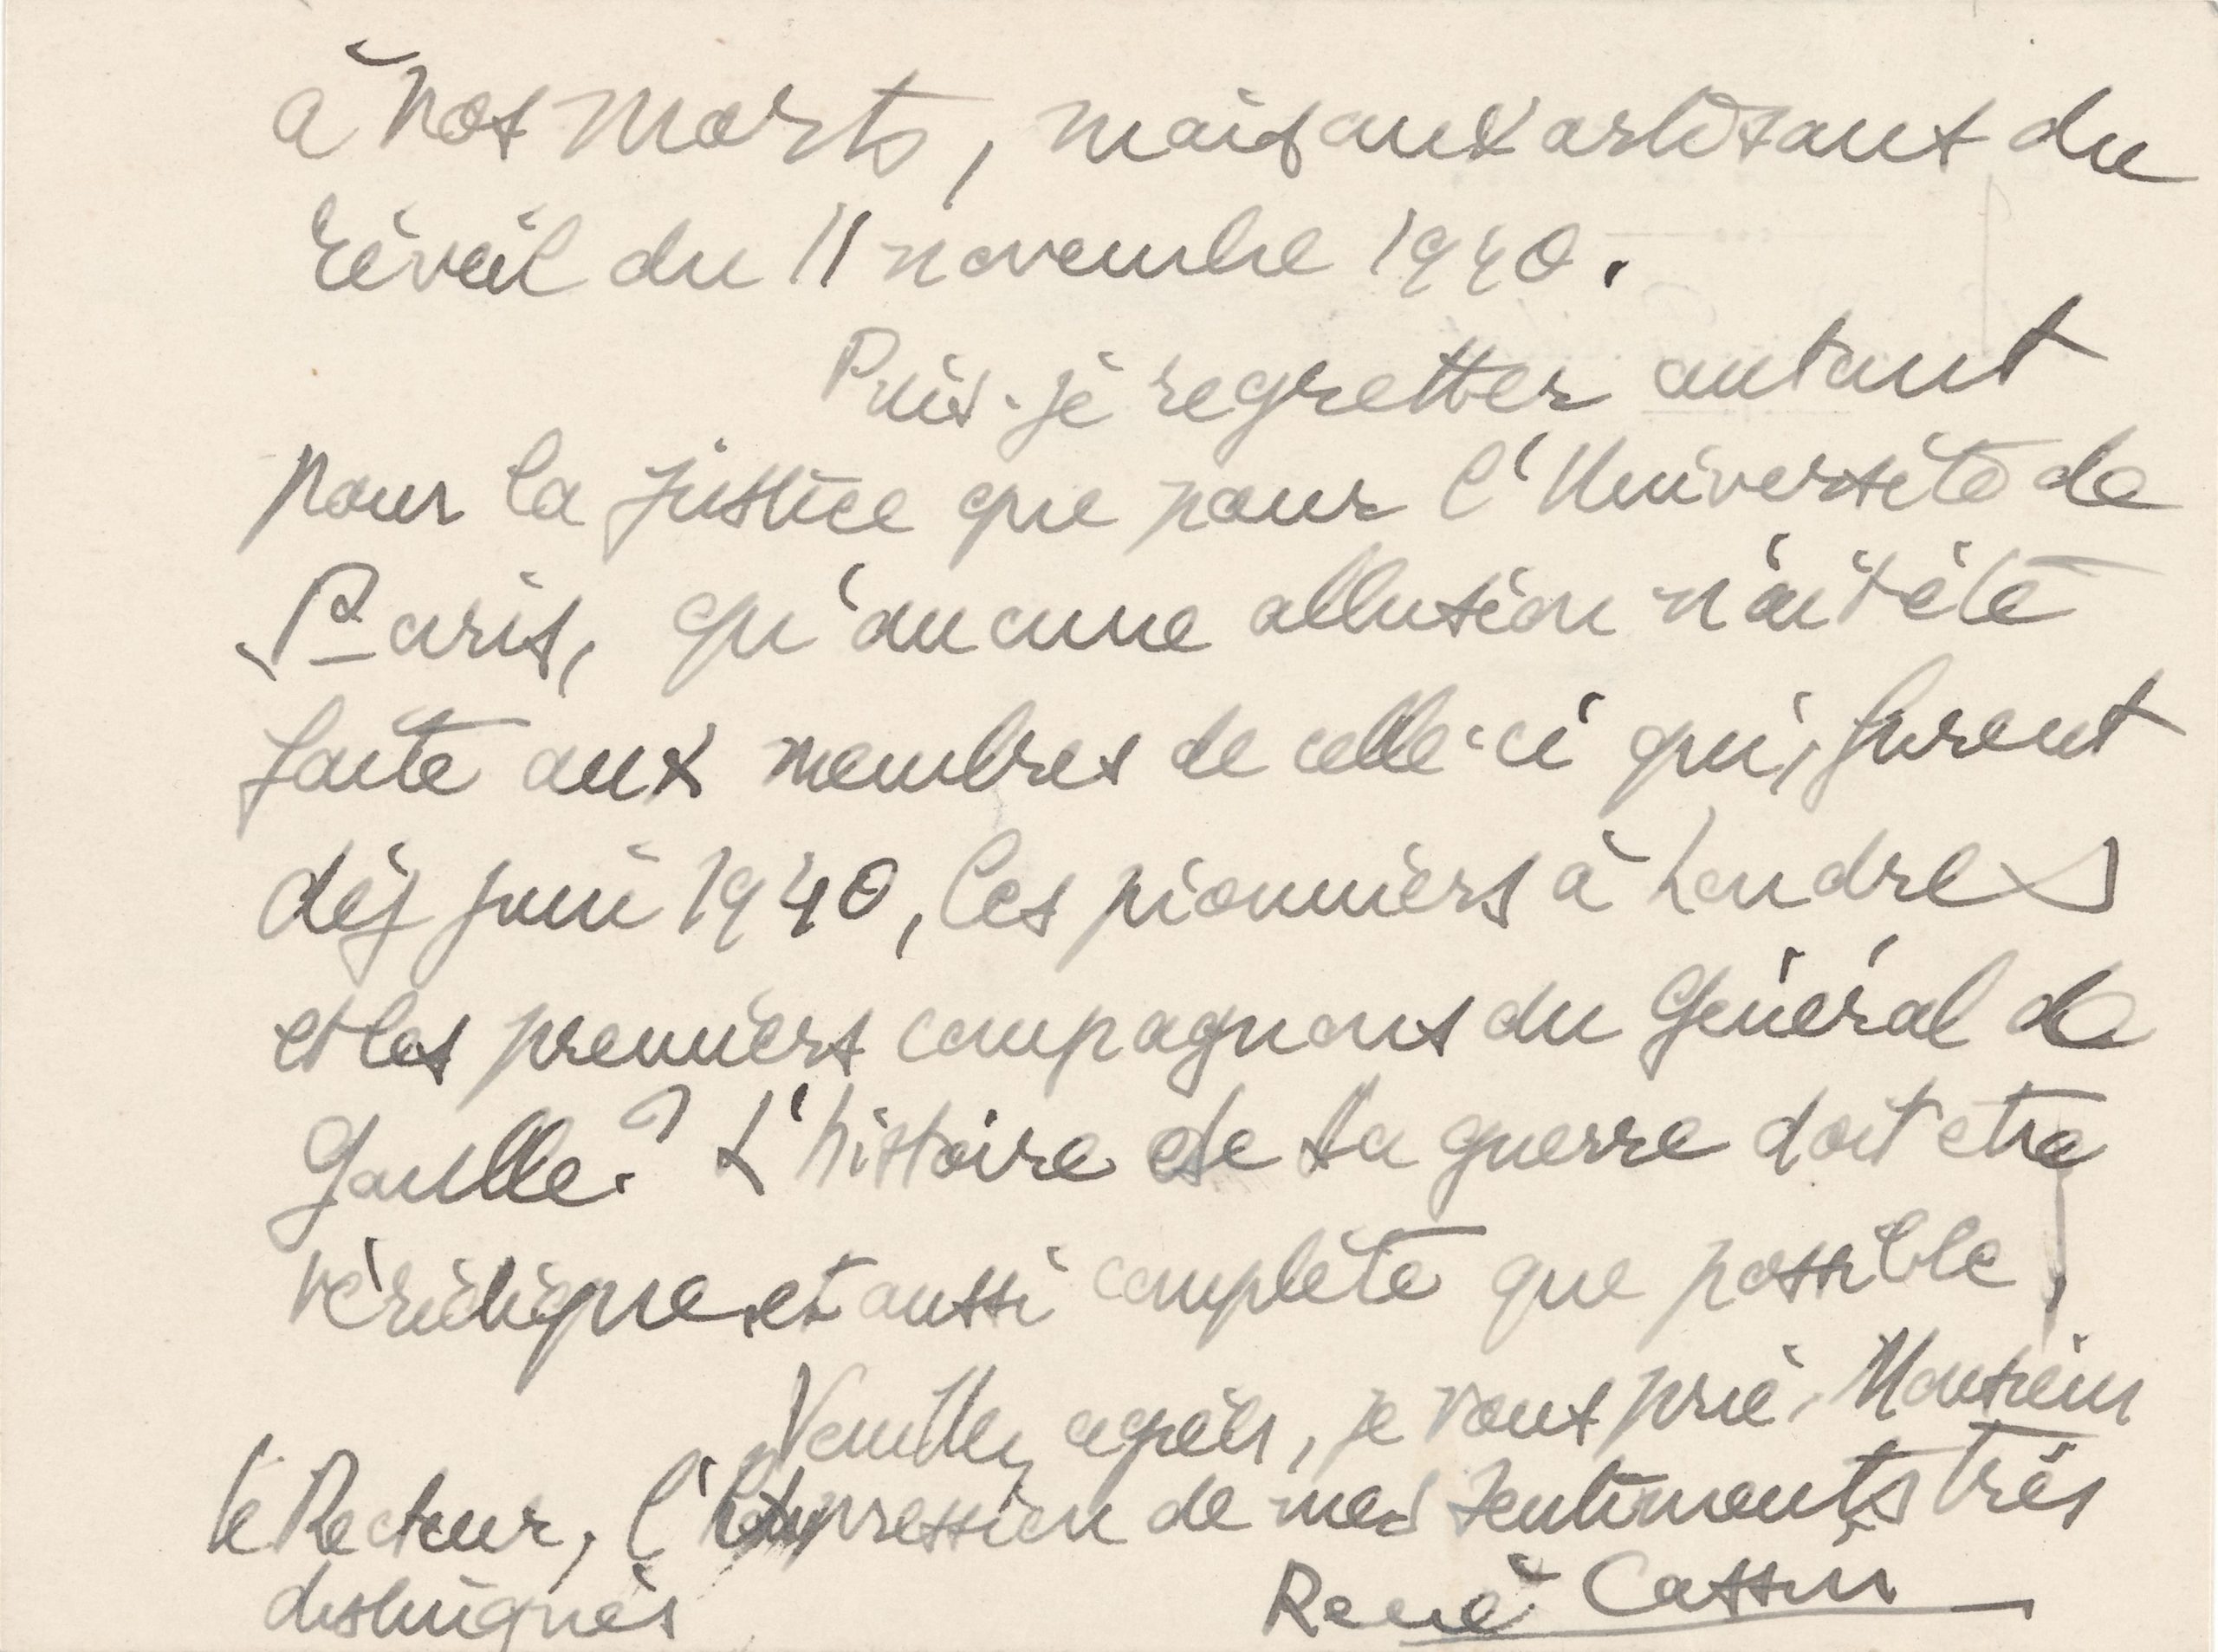 à nos morts, mais aux artisans du
réveil du 11 novembre 1940.
Puis-je regretter autant
pour la justice que pour l'Université de
Paris, qu'aucune allusion n'ait été
faite aux membres de celle-ci qui, furent
dès juin 1940, les pionniers à Londres
et les premiers compagnons du Général de
Gaulle? L'histoire de la guerre doit etre
véridique et aussi complète que possible.
Veuillez agréer, je vous prie, Monsieur
le Recteur, l'expression de mes sentiments très
distingués
René Cassin